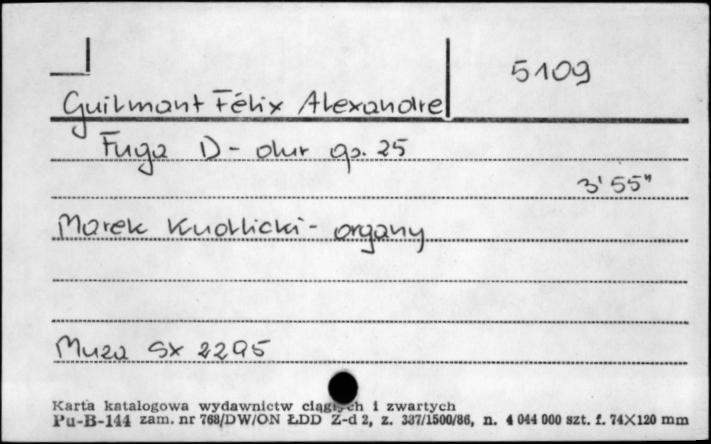 5109
Guilmant Félix Alexandre
Fuga D-dur op. 25
3'55"
Marek Kudlicki - organy
Muza Sx 2295
Karta katalogowa wydawnictw ciągłych i zwartych
Pu-B-144 zam. nr 768/DW/ON ŁDD Z-d 2, z. 337/1500/86, n. 4 044 000 szt. f. 74X120 mm